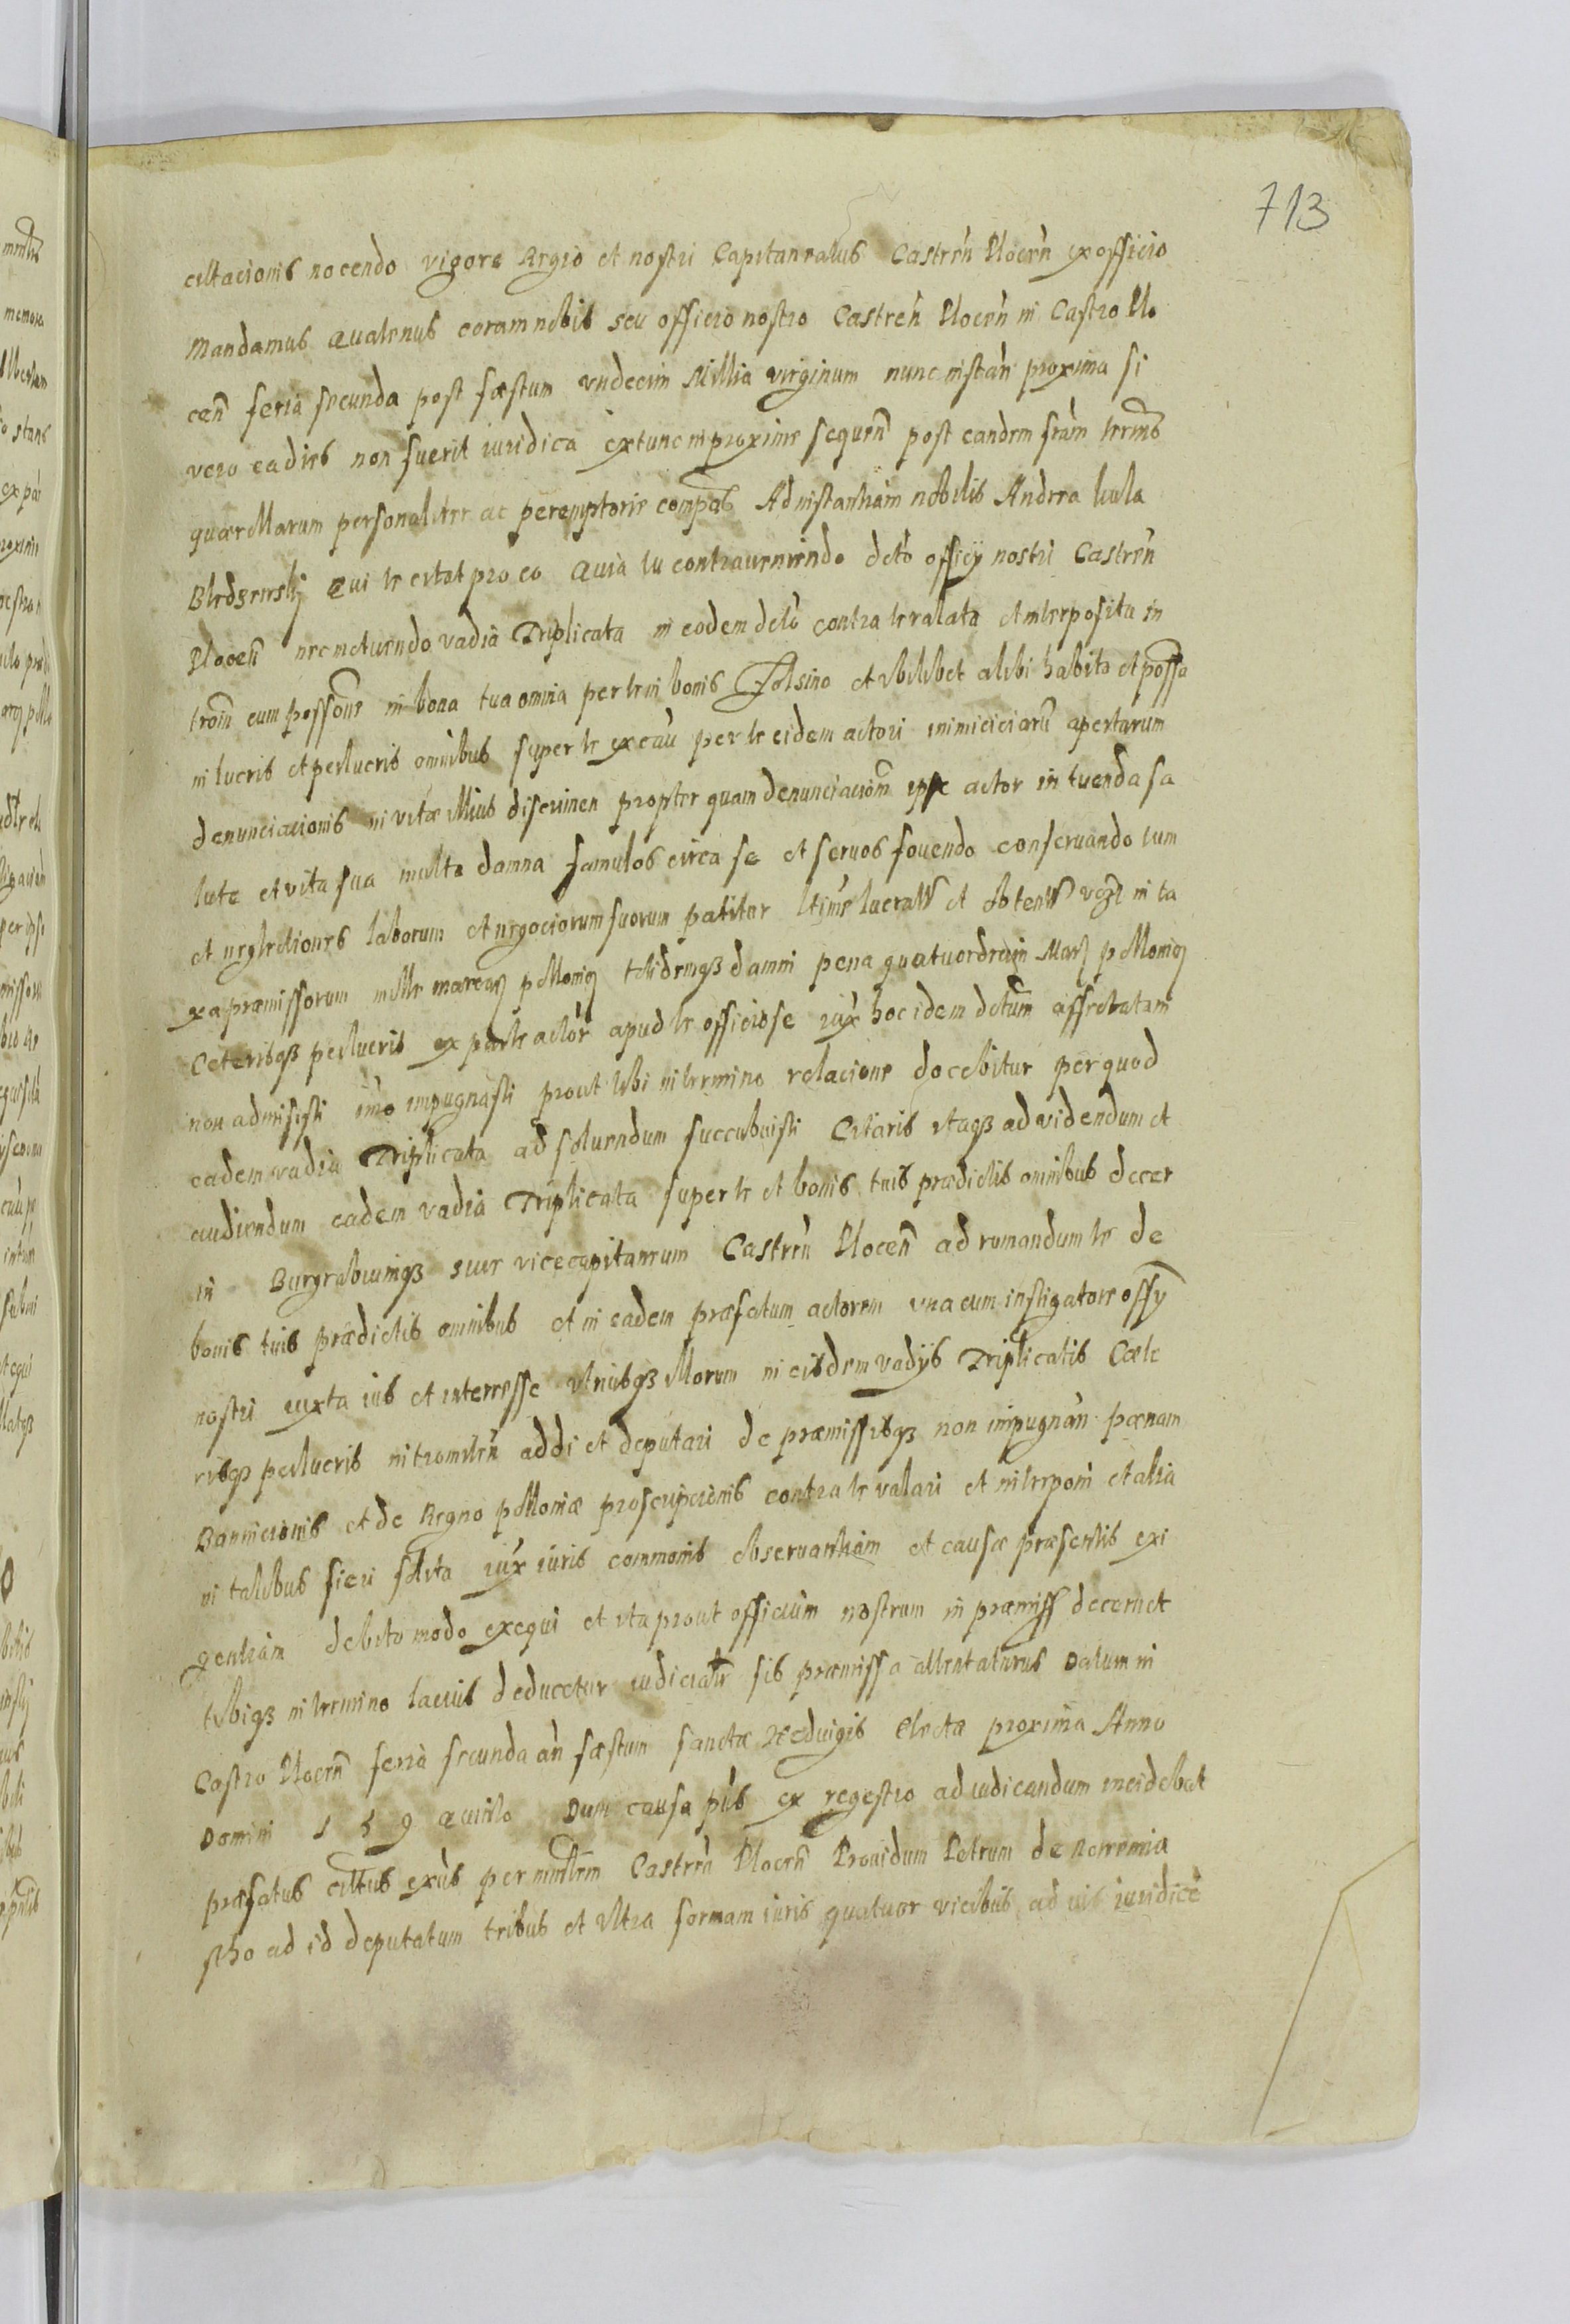 713
citacionis nocendo vigore Regio et nostri Capitaneatus Castren̄ Plocen̄ ex officio
Mandamus quatenus coram nobis seu officio nostro Castren̄ Plocen̄ in Castro Plo
cen̄ feria secunda post fæstum vndecim Millia virginum nunc instan̄ proxima si
vero ea dies non fuerit iuridica extunc in proxime sequen̄ post eandem feram termō
quærellarum personaliter ac peremptorie compas Ad instantiam nobilis Andrea
qui te citat pro eo quia tu contraueniendo dcto officij nostri Castren̄
Plocen̄ nec metuendo vadia Triplicata in eodem dcto contra te valata et interposita in
troin̄ cum possone in bona tua omnia per te in bonis et vbilibet alibi habita et possa
in lucris et perlucris omnibus super te ex cau per te eidem actori inimiciciarū apertarum
denunciacionis in vitæ illius discrimen propter quam denunciacionē ipse actor in tuenda sa
lute et vita sua multa damna famulos circa se et seruos fouendo conseruando tum
et neglectiones laborum et negociorum suorum patitur lucratis et obtentis in ta
xa præmissorum mille marcarū polloniq totidemqꝫ damni pena quatuordecim Marq polloniq
Ceterisqꝫ perlucris ex parte actor̄ apud te officiose iux̄ hoc idem dctum affectatam
non admisisti imo impugnasti prout tibi in termino relacione docebitur per quod
eadem vadia Triplicata ad soluendum succubuisti Citaris itaqꝫ ad videndum et
audiendum eadem vadia Triplicata super te et bonis tuis prædictis omnibus decer
in Burgrabiumqꝫ siue vicecapitaneum Castren̄ Plocen̄ ad rumandum te de
bonis tuis prædictis omnibus et in eadem præfatum actorem vna cum instigatore offij
nostri iuxta ius et interesse vtriusqꝫ illorum in eisdem vadijs Triplicatis Cæte
risqꝫ perlucris intromitten̄ addi et deputari de præmissisqꝫ non impugnan̄ pœnam
Bannicionis et de Regno polloniæ proscripcionis contra te valari et interponi et alia
in talibus fieri solita iux̄ iuris communis obseruantiam et causæ præsentis exi
gentiam debito modo exequi et ita prout officium nostrum in præmiss decernet
tibiqꝫ in termino lacius deducetur iudicialr sis præmissa attentaturus Datum in
Castro Plocen̄ feria secunda an̄ fæstum sanctæ Hedvigis electæ proxima Anno
Domini 1 5 9 quinto Dum causa pn̄s ex regestro ad iudicandum incidebat
præfatus citatus exūs per mintrem Castren̄ Plocen̄ Prouidum Petrum de
ad id deputatum tribus et vltra formam iuris quatuor vicibus ad ius iuridice